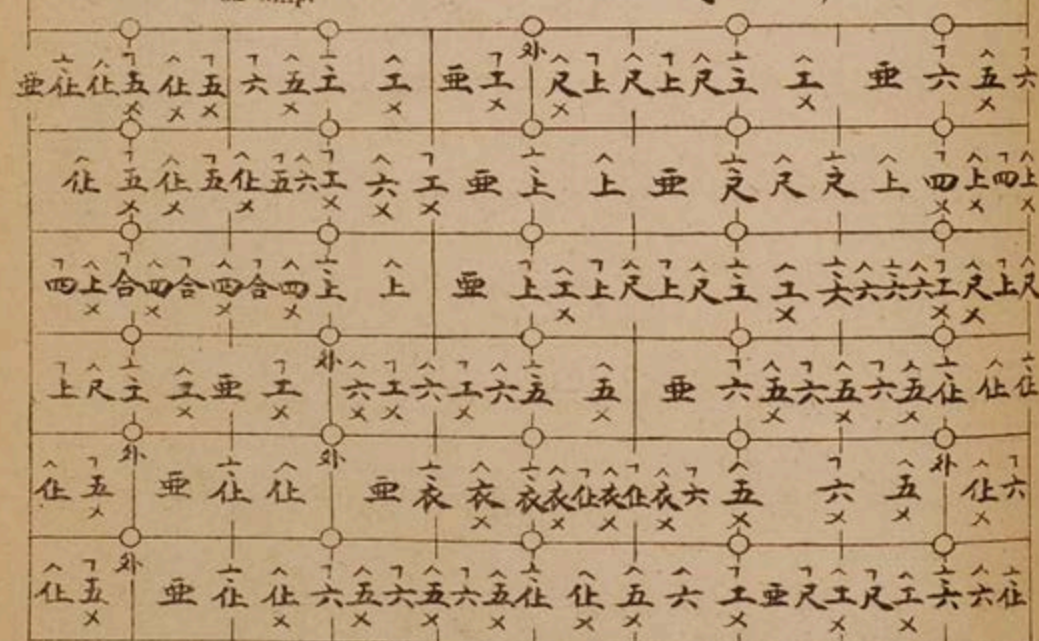 亜仩仩五仩五六五工工亜工外尺上尺上尺工工亜六五六
仩五仩五仩五六工六工亜上上亜尺尺尺上四上四上
四上合四合四合四上上亜上工上尺上尺工工六六六六工尺上尺
上尺工工亜工外六工六工六五五亜六五六五六五仩仩仩
仩五外亜仩仩外亜衣衣衣衣仩衣仩衣六五六五外仩六
仩五外亜仩仩六五六五六五仩仩五六工亜尺工尺工六六仩